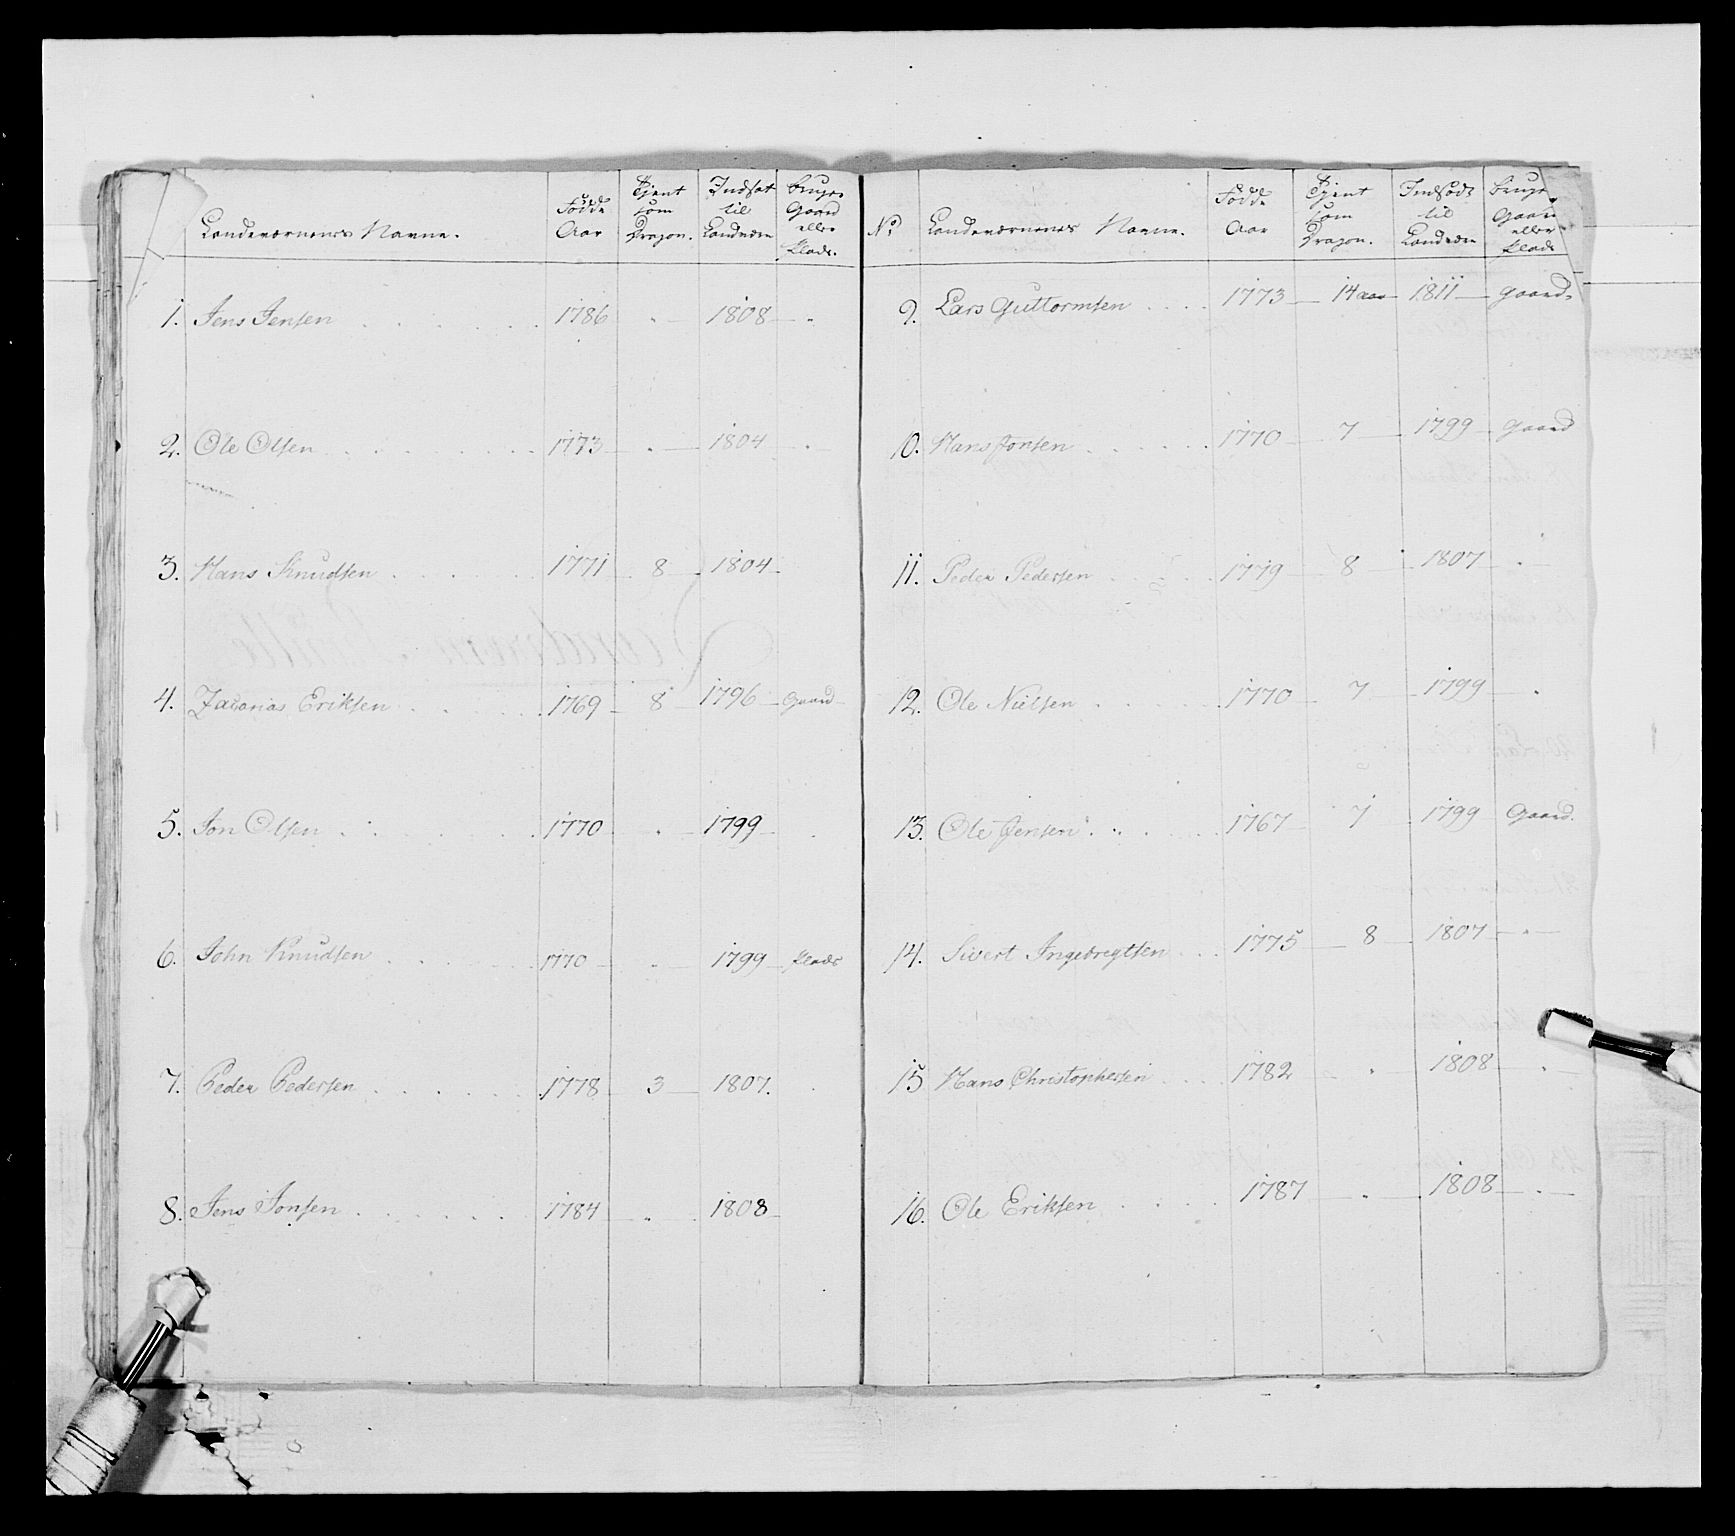 Landeværnenes Navne. Fødde Aar Tjent som Dragon. Indsat til Landværn bruger Gaard eller Plads.
1. Jens Jensen 1786 " 1808 "
2. Ole Olsen 1773 " 1804 "
3. Hans Knudsen 1771 8 1804
4. Zacarias Eriksen 1769 8 1796 Gaard
5. Jon Olsen 1770 " 1799
6. John Knudsen 1770 " 1799 Plads
7. Peder Pedersen 1778 3 1807.
8. Jens Jonsen 1784 " 1808
No Landeværnenes Navne. Fødde Aar Tjent som Dragon. Indsadt til Landværn bruger Gaard eller Plads
9. Lars Guttormsen 1773 14 aar 1811 Gaard.
10. Hans Jonsen 1770 7 1799 Gaard
11. Peder Pedersen 1779 8 1807 "
12. Ole Nielsen 1770 7 1799 "
13. Ole Jensen 1767 7 1799 Gaard.
14. Sivert Ingebregtsen 1775 8 1807 "
15 Hans Christophersen 1782 " 1808 "
16. Ole Eriksen 1787 " 1808 "